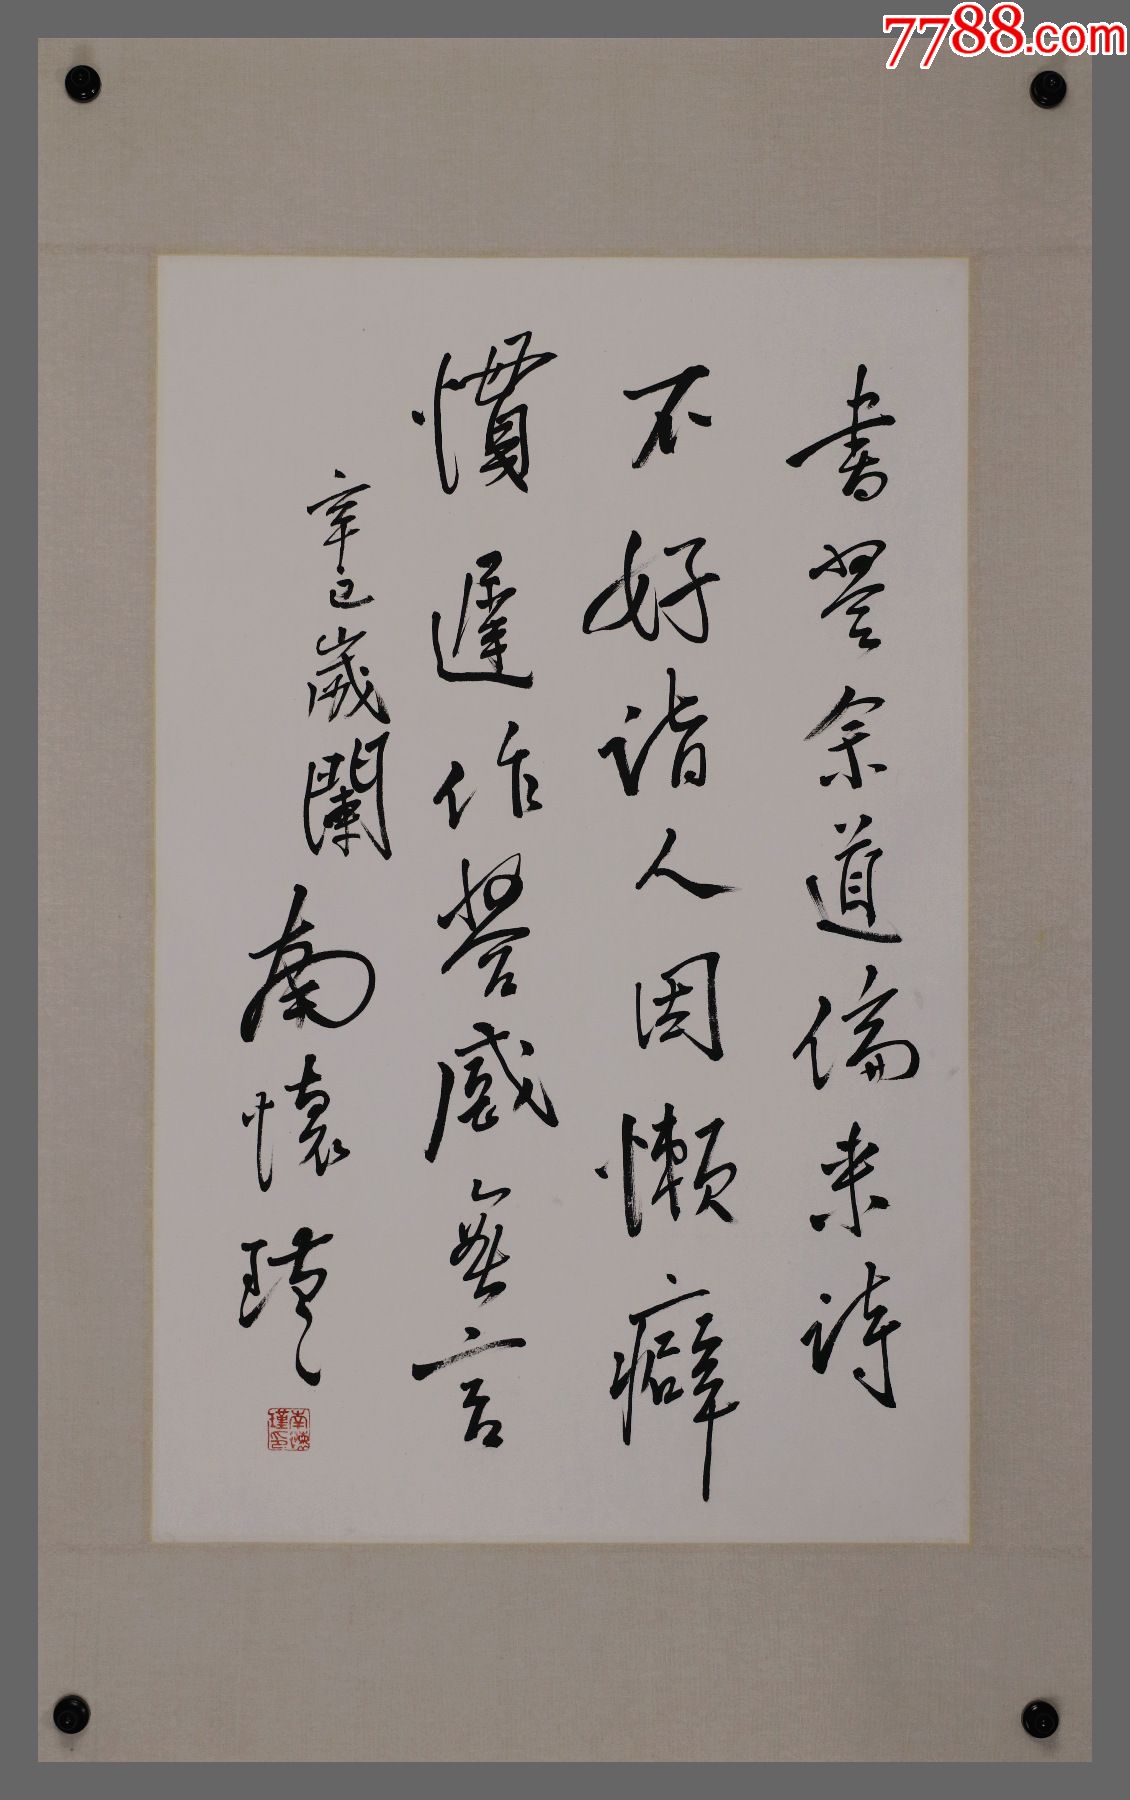 7788.com
書答余道倫来詩
不好詣人因懶癖
慣遲作答感無言
辛巳歲闌南懷瑾
南懷
瑾印